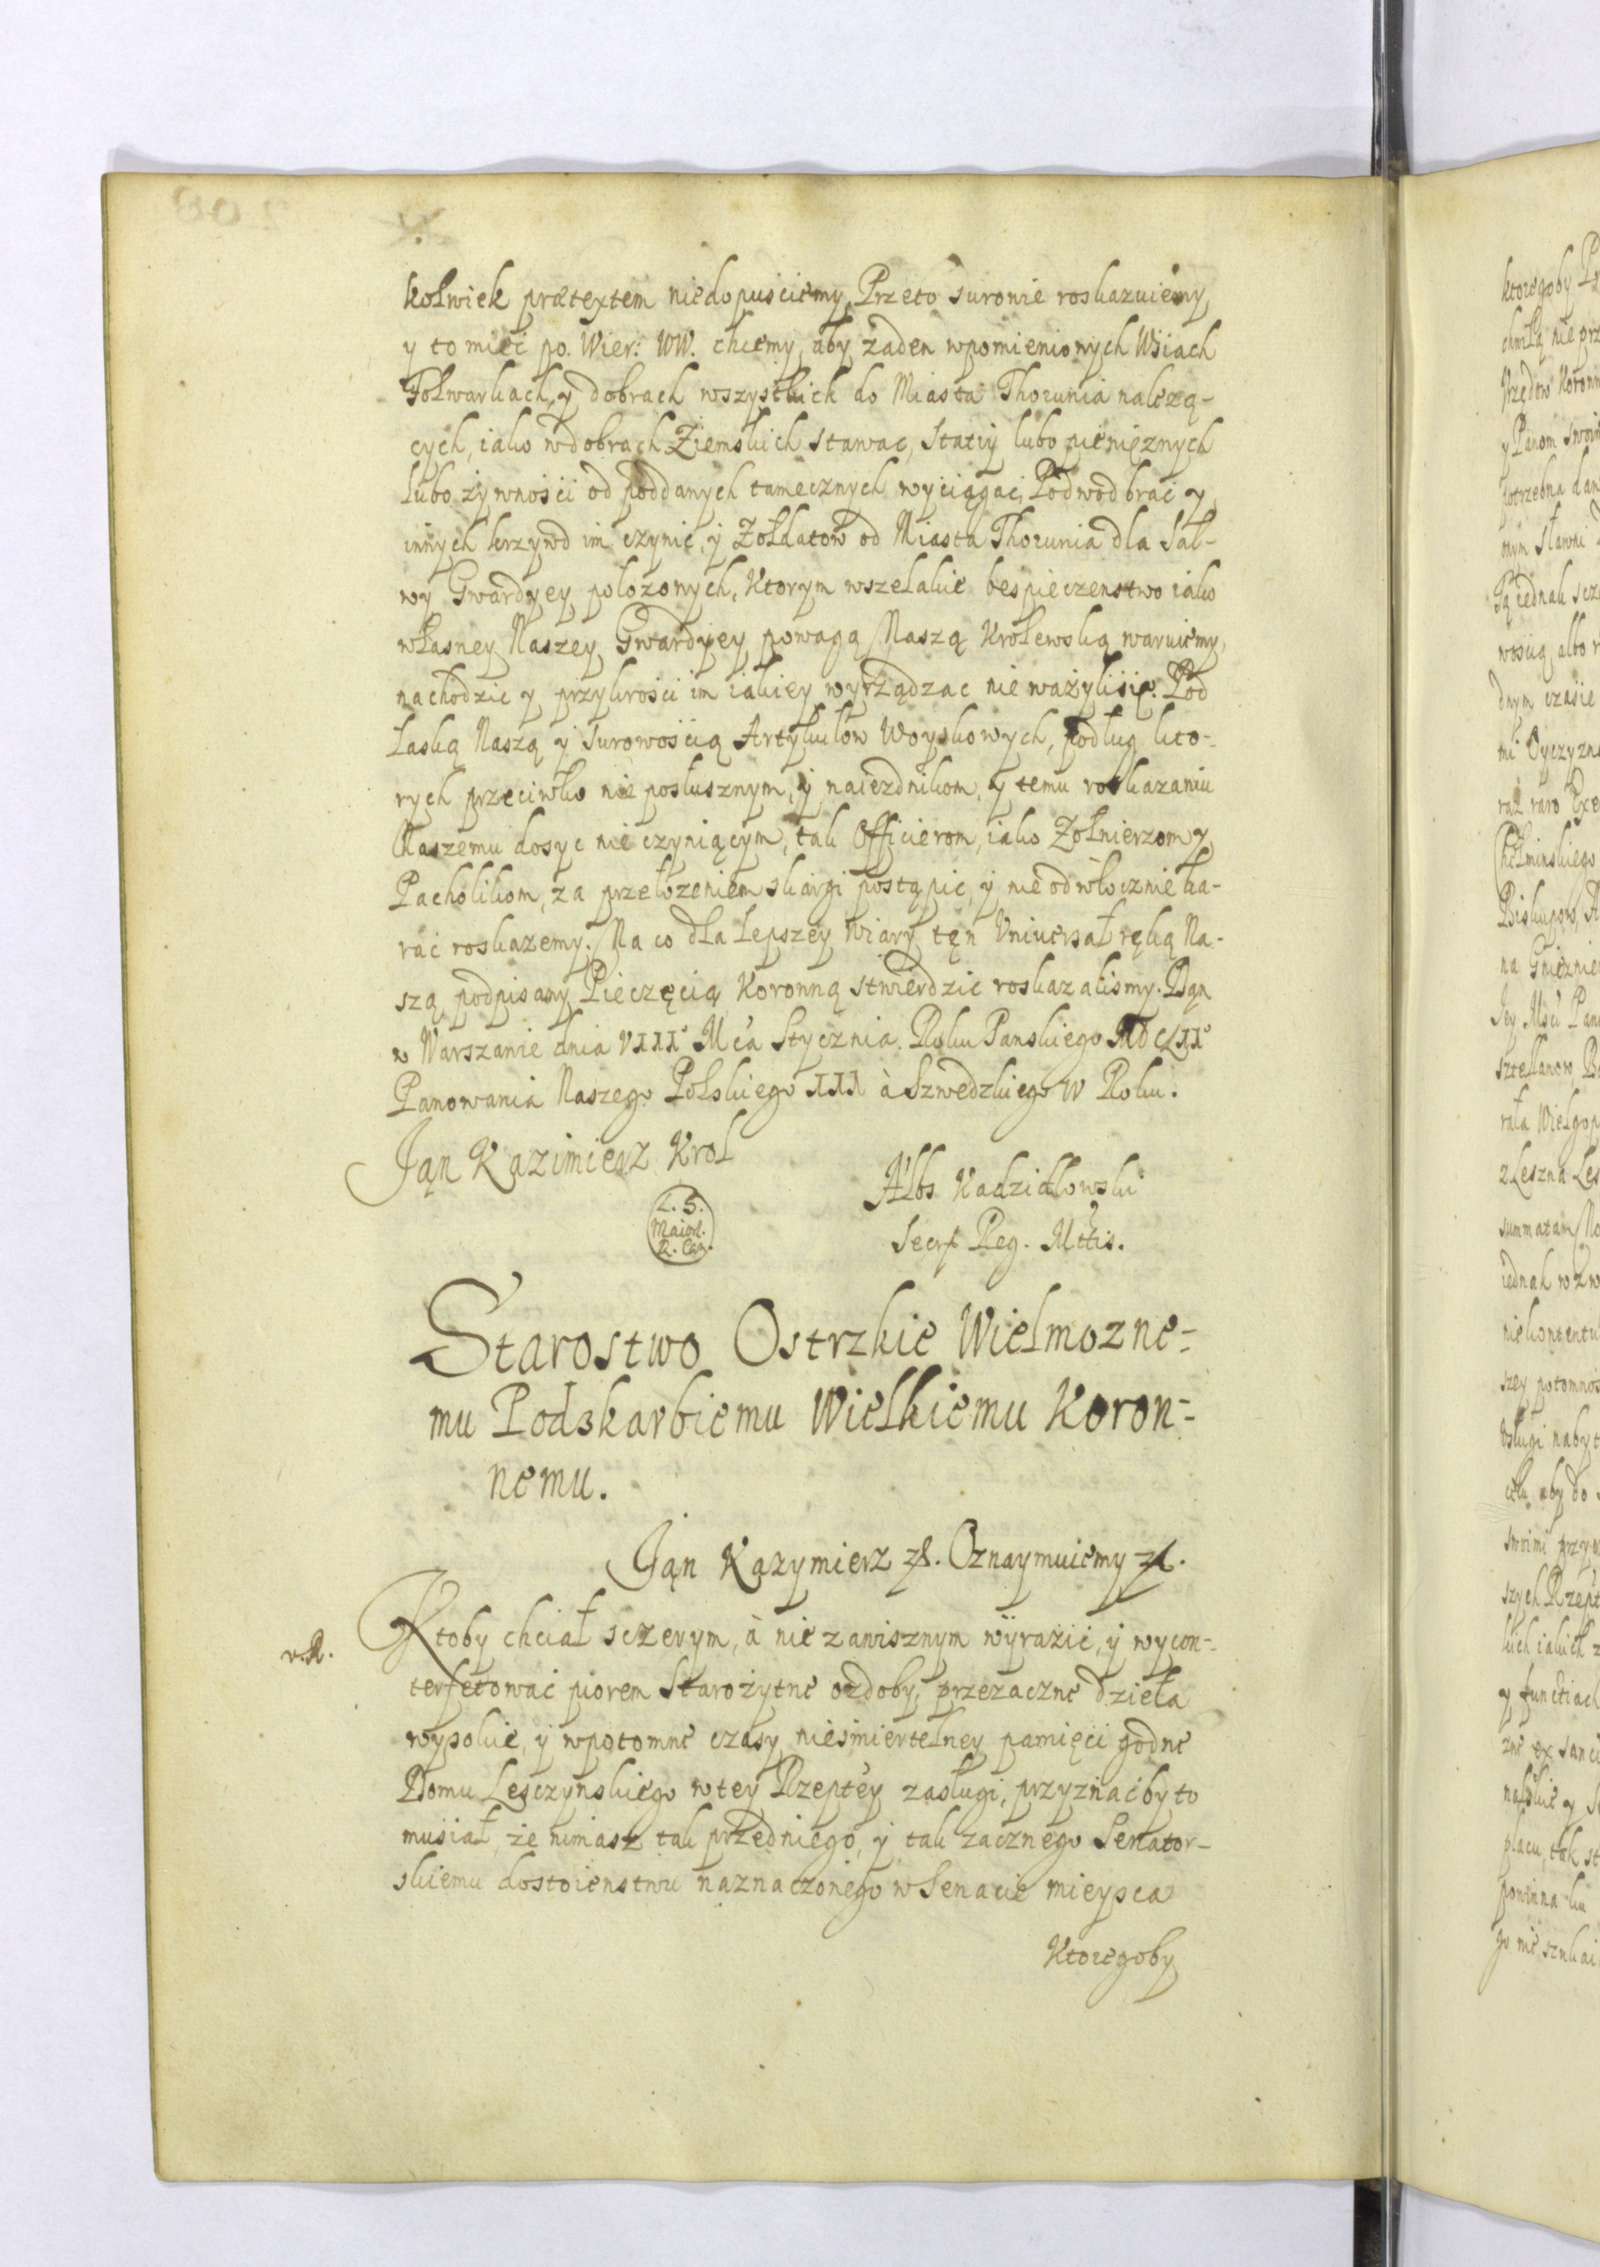 kolwiek prætextem niedopuściemy. Przeto surowie roskazuiemy,
y to mieć po. Wier: WW. chcemy, aby żaden wpomienionych Wśiach
Folwarkach, y dobrach wszystkich do Miasta Thorunia należą-
cych, iako wdobrach Ziemskich stawac, Staciy lubo pieniężnych
lubo żywności od poddanych tamecznych wyciągać, Podwod brać y
innych krzywd im czynić, y Żołdatow od Miasta Thorunia dla Sal-
wy Gwardyey położonych, Ktorym wszelakie bespieczenstwo iako
własney Naszey Gwardyey powagą Naszą Krolewską waruiemy,
nachodzic y przykrości im iakiey wyrządzac nie ważylisię. Pod
Łaską Naszą y surowością Artykułow Woyskowych, podług kto-
rych przeciwko nie posłusznym, y naiezdnikom, y temu roskazaniu
Naszemu dosyc nie czyniącym, tak Officierom, iako Żołnierzom y
Pacholikom, za przełożeniem skargi postąpić, y nie odwłocznie ka-
rać roskażemy. Na co dla lepszey wiary tęn Vniuersał ręką Na-
szą podpisany Pieczęcią Koronną stwierdzic roskazalismy. Dąn
w Warszawie dnia VIII Mca Stycznia. Roku Panskiego MDCLII
Panowania Naszego Polskiego III à Szwedzkiego IV Roku.
Jąn Kazimierz Krol
Albs Kadzidłowski
L. S.
Maior.
R. Can.
Secr Reg. Mttis.
Starostwo Ostrzkie Wielmożne-
mu Podskarbiemu Wielkiemu Koron-
nemu.
Jąn Kazymierz zł. Oznaymuiemy zł.
v. R.
Ktoby chciał sczerym, à nie zawisznym wyrazić, y wycon-
terfetować piorem Starożytne ozdoby, przezaczne dzieła
wysokie, y wpotomne czasy nieśmiertelney pamięci godne
Domu Lesczynskiego wtey Rzeptey zasługi, przyznać by to
musiał, że nimasz tak przedniego, y tak zacznego Senator-
skiemu dostoienstwu naznaczonego w Senacie mieysca
Ktoregoby